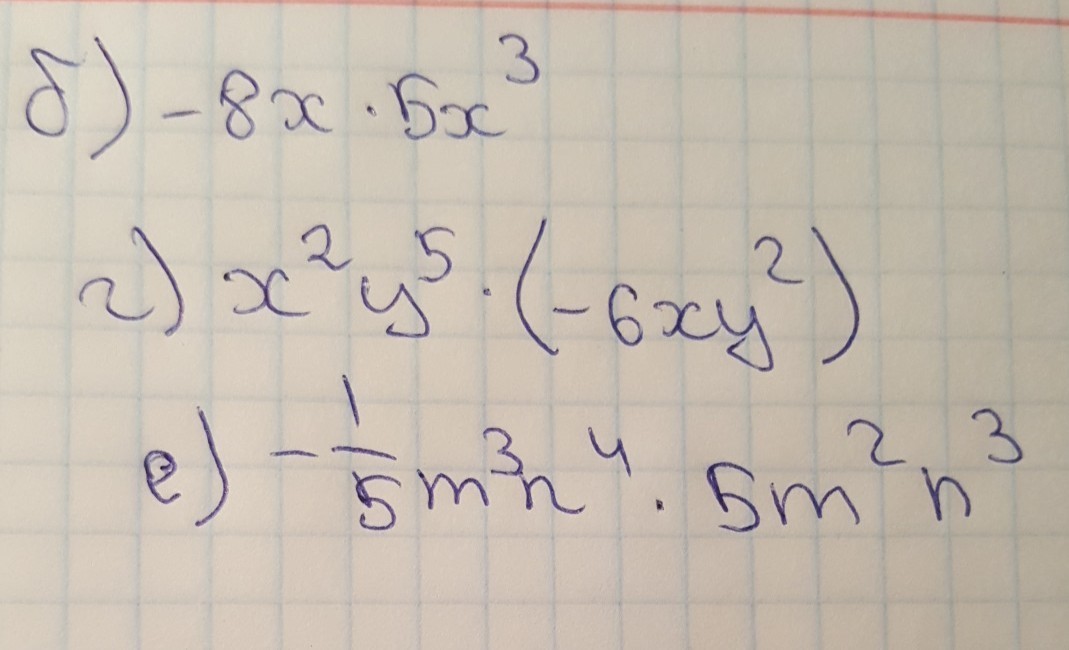 б) -8x · 5x³
г) x²y⁵ · (-6xy²)
е) -1/5 m³n⁴ · 5m²n³